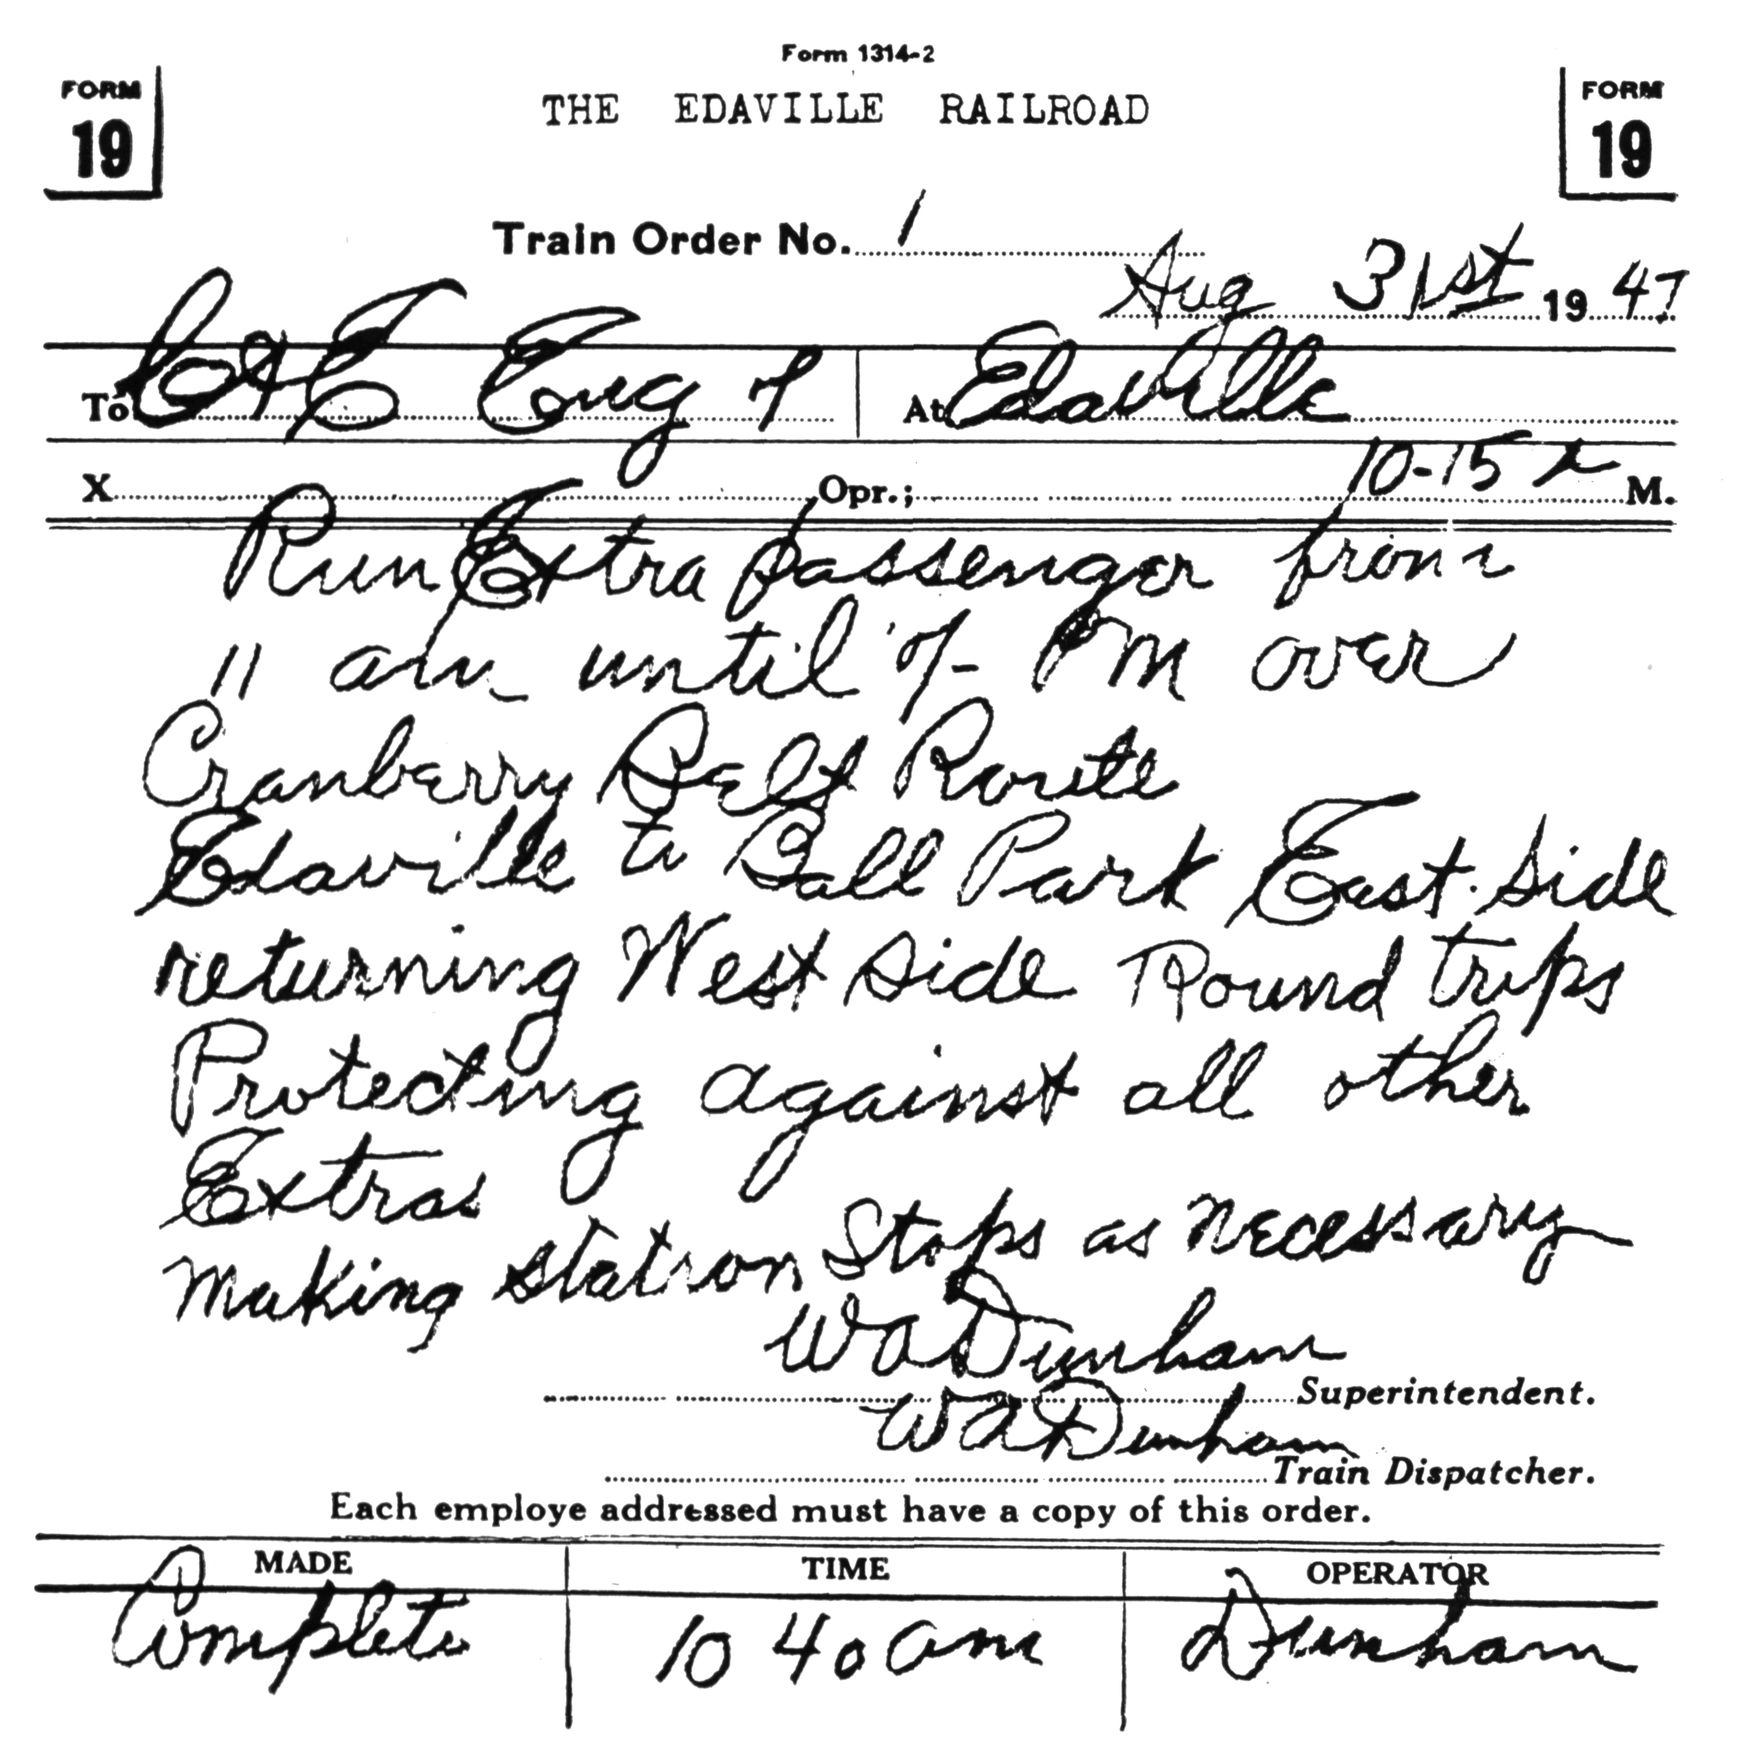 Form 1314-2
FORM 19 THE EDAVILLE RAILROAD FORM 19
Train Order No. 1
Aug 31st 19 47
To C&E Eng 7 At Edaville
X Opr.; 10-15 A M.
Run Extra passenger from
11 am until 7 PM over
Cranberry Belt Route
Edaville to Ball Park East Side
returning West Side Round trips
Protecting against all other
Extras
Making station Stops as necessary
WA Dunham
Superintendent.
WA Dunham
Train Dispatcher.
Each employe addressed must have a copy of this order.
MADE TIME OPERATOR
Complete 10 40 am Dunham